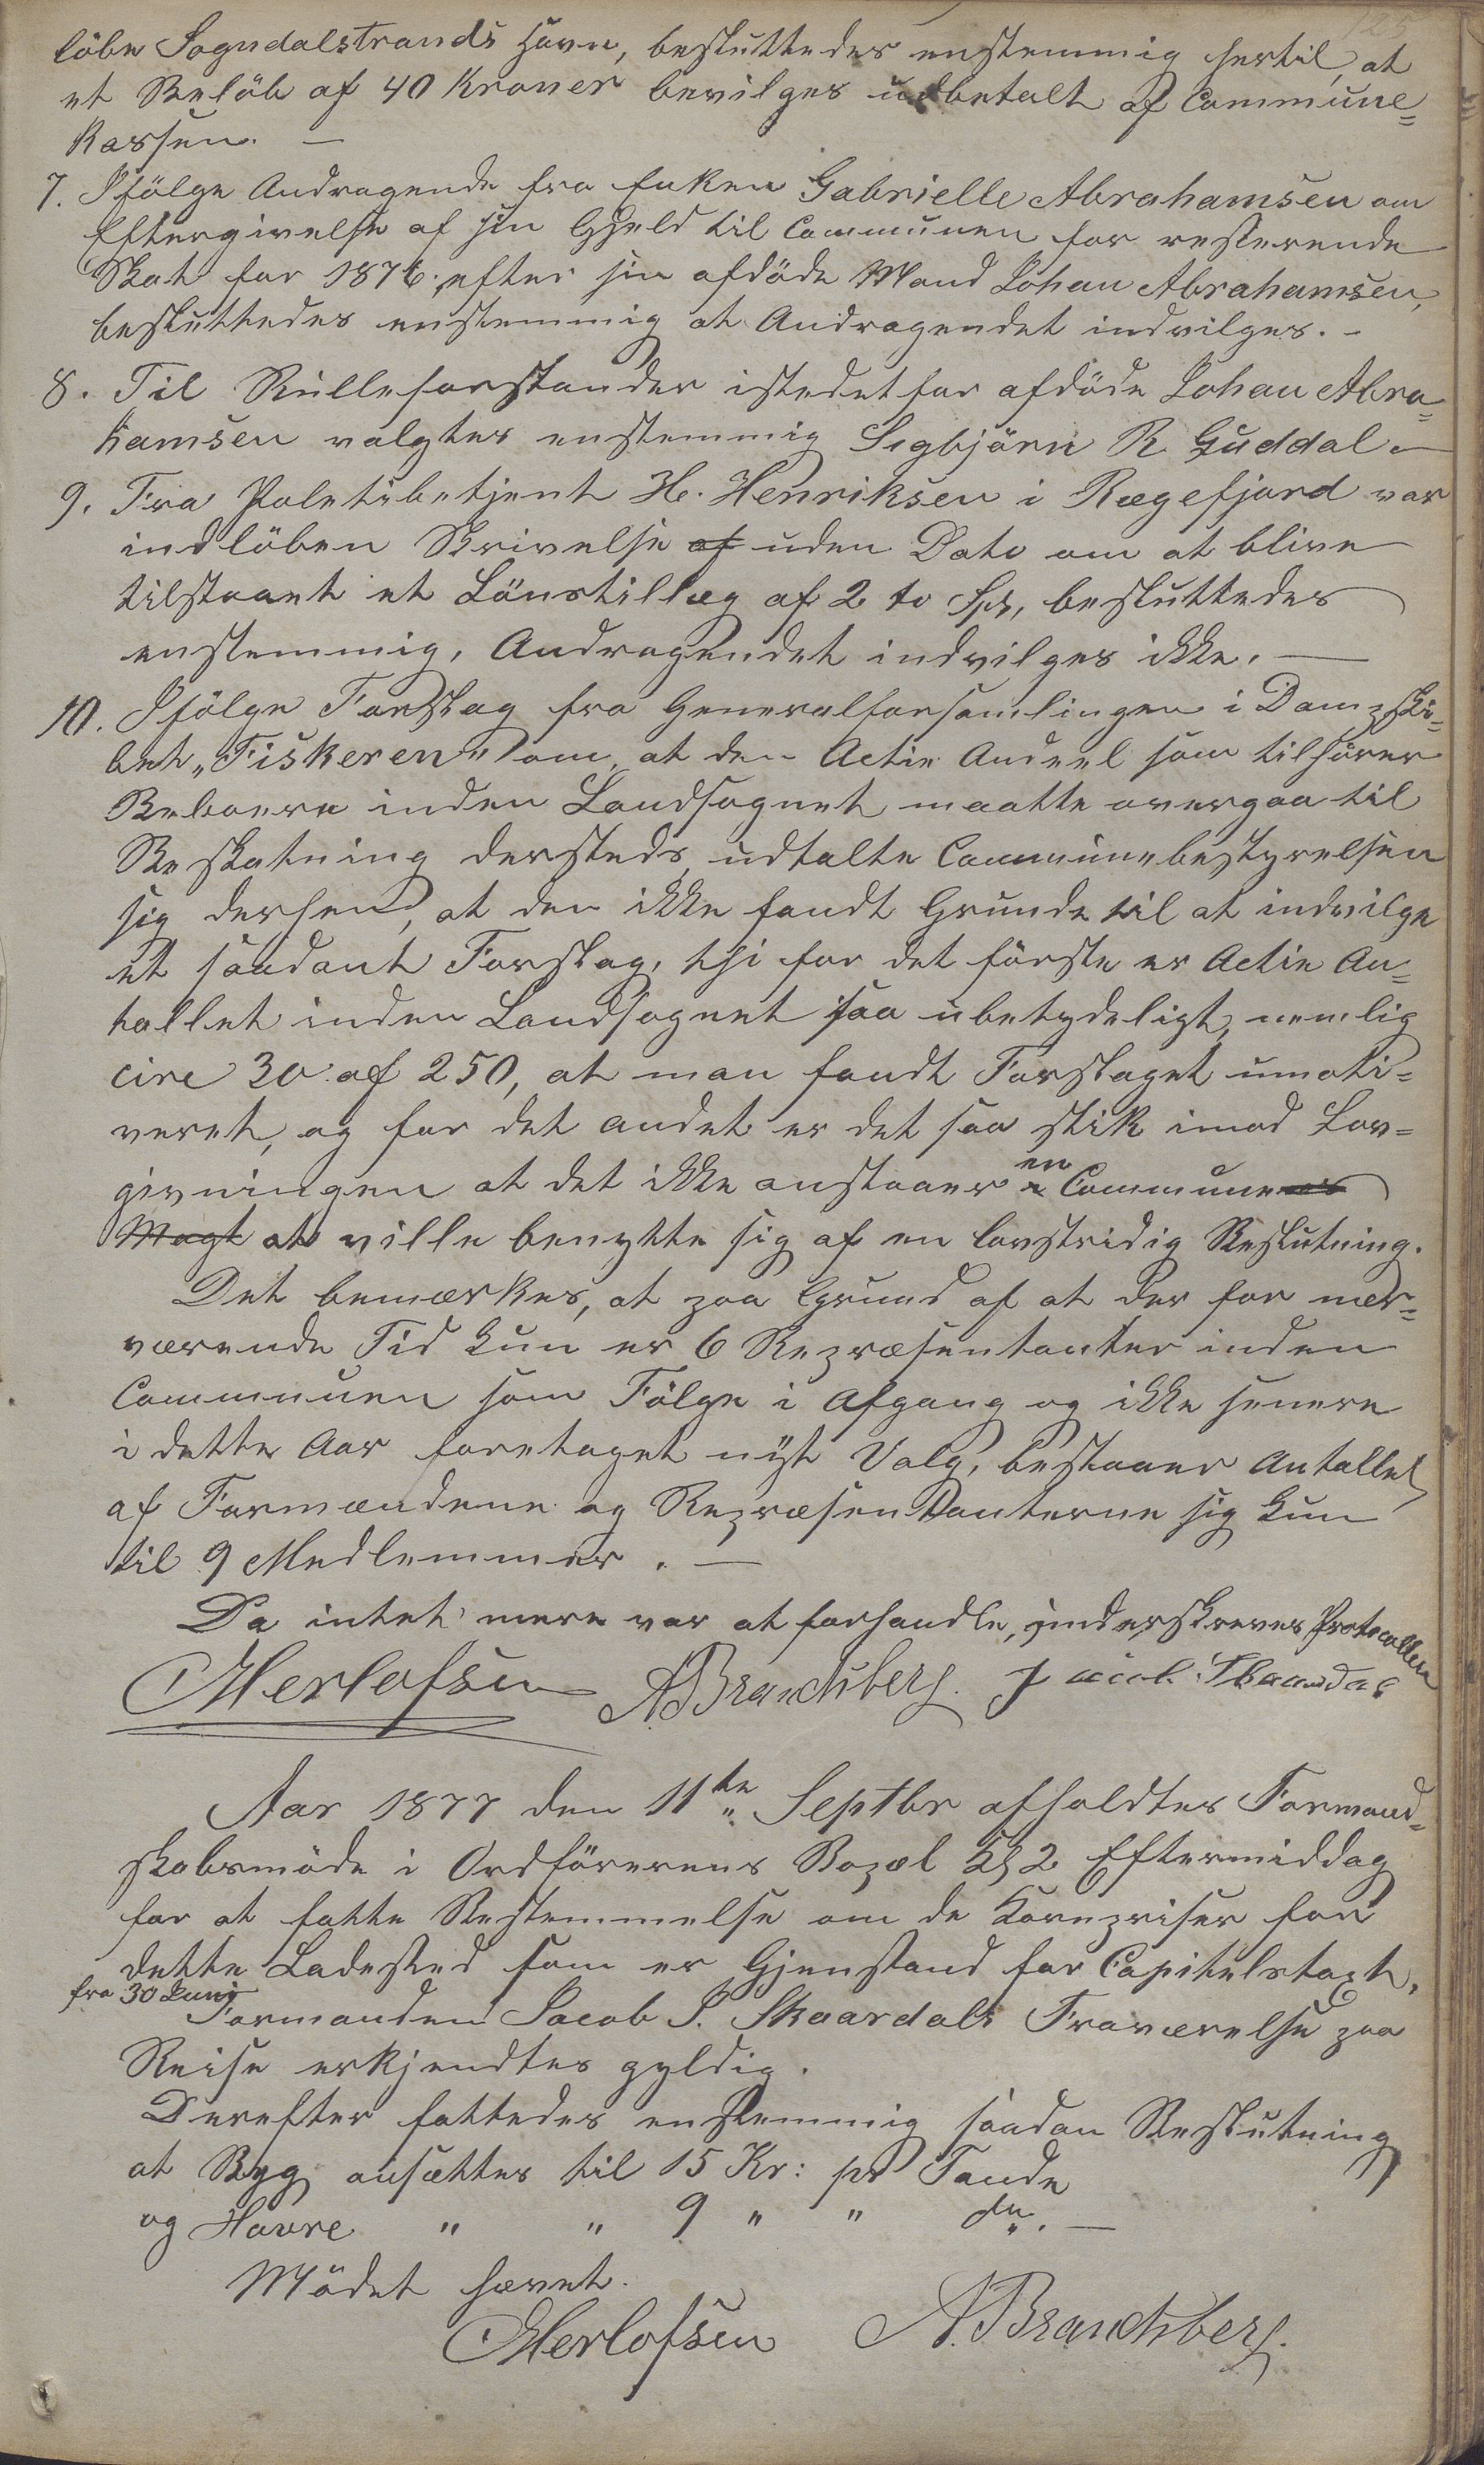 125
löbe Sogndalstrands Havn, besluttedes enstemmig hertil, at
et Belöb af 40 Kroner bevilges udbetalt af Commune=
kassen. —
7. Ifölge Andragende fra Enken Gabrielle Abrahamsen om
Eftergivelse af sin Gjeld til Communen for resterende
Skat for 1876 efter sin afdöde Mand Johan Abrahamsen,
besluttedes enstemmig at Andragendet indvilges. -
8. Til Rulleforstander istedetfor afdöde Johan Abra=
hamsen valgtes enstemmig Segbjörn R Guddal. —
9. Fra Poletibetjent H. Henriksen i Rægefjord var
indlöben Skrivelse af uden Dato om at blive
tilstaaet et Lönstillæg af 2 to Spd, besluttedes
enstemmig, Andragendet indvilges ikke. —
10. Ifölge Forslag fra Generalforsamlingen i Dampski=
bet „Fiskeren" om, at den Actie Andeel som tilhörer
Beboere inden Landsognet maatte overgaa til
Beskatning dersteds, udtalte Communebestyrelsen
sig derhen, at den ikke fandt Grunde til at indvilge
et saadant Forslag, thi for det förste er Actie An=
tallet inden Landsognet saa ubetydeligt, nemlig
circ 30 af 250, at man fandt Forslaget umoti=
veret, og for det andet er det saa stik imod Lov=
givningen at det ikke anstaaer en Communes
Magt at ville benytte sig af en lovstridig Beslutning.
Det bemærkes, at paa Grund af at der for nær=
værende Tid kun er 6 Repræsentanter inden
Communen som Fölge i Afgang og ikke senere
i dette Aar foretaget nyt Valg, bestaaer Antallet
af Formændene og Repræsentanterne sig kun
til 9 Medlemmer. —
Da intet mere var at forhandle, underskreves Protocollen
Herlofsen A. Brandsberg. Jacob. Skaardal
Aar 1877 den 11te Septbr afholdtes Formand=
skabsmöde i Ordförerens Bopæl Kl 2 Eftermiddag
for at fatte Bestemmelse om de Kornpriser for
dette Ladested som er Gjenstand for Capitelstaxt.
fra 30 Juni
Formanden Jacob S. Skaardals Fraværelse paa
Reise erkjendtes gyldig.
Derefter fattedes enstemmig saadan Beslutning
at Byg ansættes til 15 Kr: pr Tønde
og Havre " " 9 " " do. —
Mödet hævet.
Herlofsen A. Brandsberg.